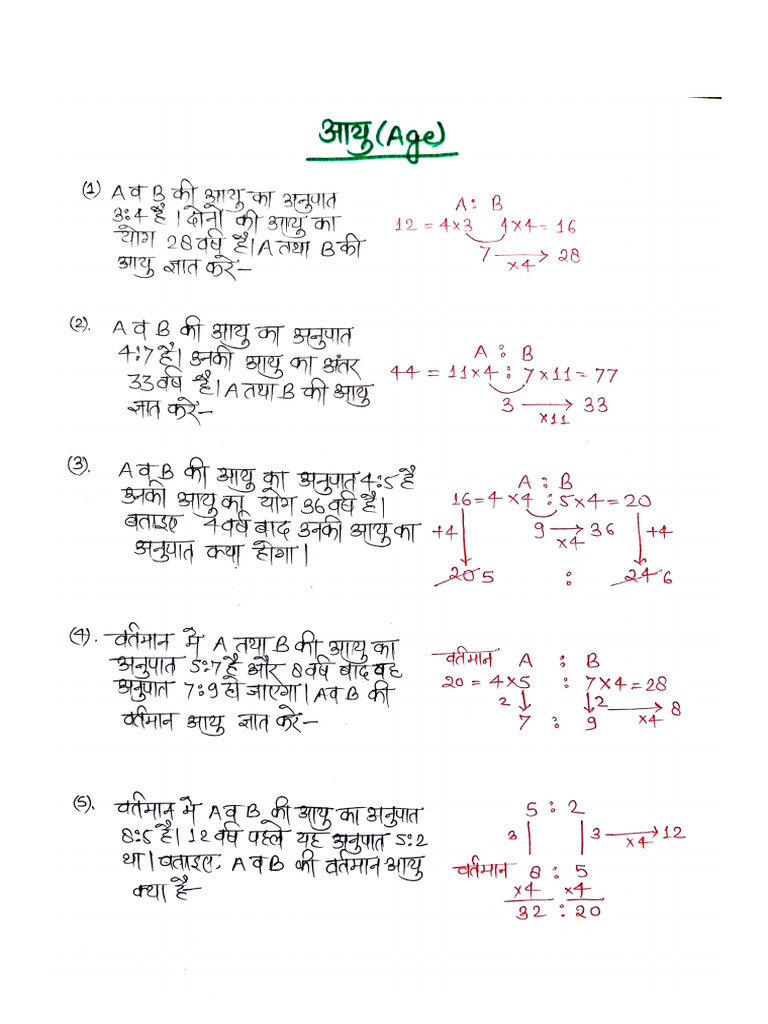 आयु (Age)
(1) A व B की आयु का अनुपात
3:4 है। दोनों की आयु का
योग 28 वर्ष है। A तथा B की
आयु ज्ञात करें–
A : B
12 = 4×3 4×4 = 16
7 ×4 → 28
(2). A व B की आयु का अनुपात
4:7 है। उनकी आयु का अंतर
33 वर्ष है। A तथा B की आयु
ज्ञात करें–
A : B
44 = 11×4 : 7×11 = 77
3 ×11 → 33
(3). A व B की आयु का अनुपात 4:5 है
उनकी आयु का योग 36 वर्ष है।
बताइए 4 वर्ष बाद उनकी आयु का
अनुपात क्या होगा।
A : B
16 = 4×4 : 5×4 = 20
+4 9 ×4 → 36 +4
20 5 : 24 6
(4). वर्तमान मे A तथा B की आयु का
अनुपात 5:7 है और 8 वर्ष बाद यह
अनुपात 7:9 हो जाएगा। A व B की
वर्तमान आयु ज्ञात करें–
वर्तमान A : B
20 = 4×5 : 7×4 = 28
2 ↓ ↓ 2 ×4 → 8
7 : 9
(5). वर्तमान मे A व B की आयु का अनुपात
8:5 है। 12 वर्ष पहले यह अनुपात 5:2
था। बताइए, A व B की वर्तमान आयु
क्या है–
5 : 2
3 3 ×4 → 12
वर्तमान 8 : 5
×4 ×4
32 : 20